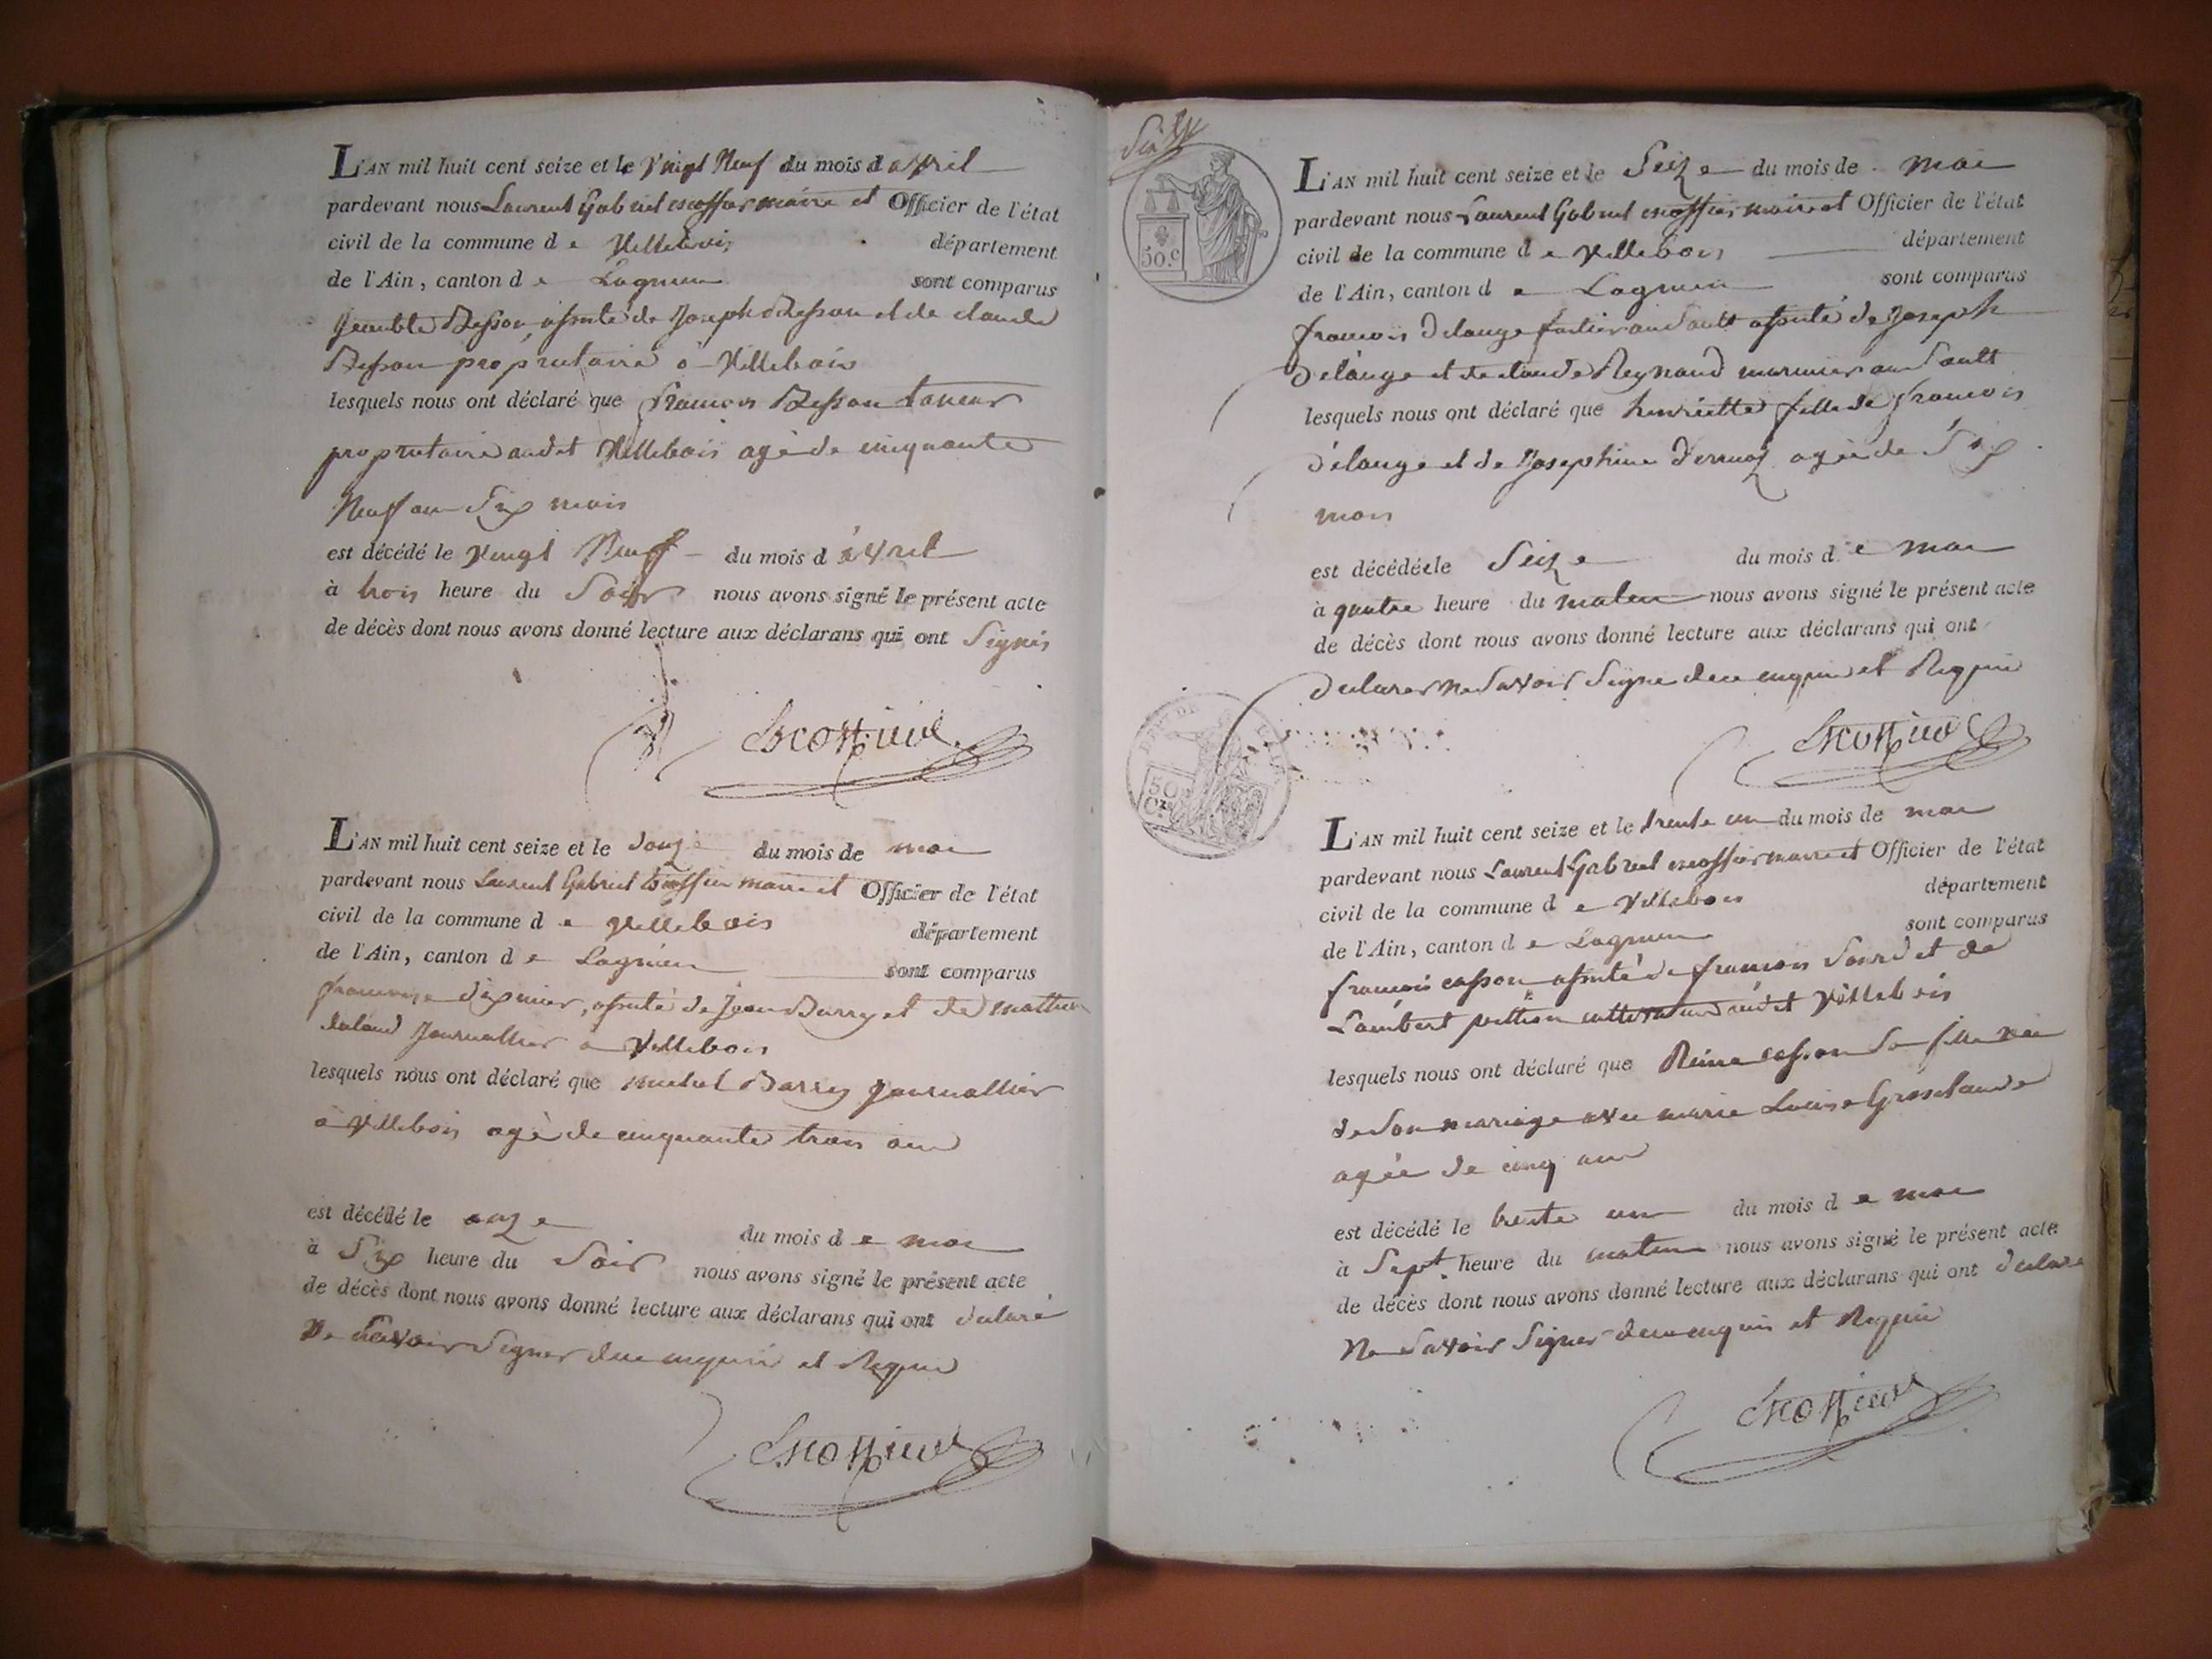 L'AN mil huit cent seize et le vingt Neuf du mois d avril
pardevant nous Laurent Gabriel maire et Officier de l'état
civil de la commune d e Villebois département
de l'Ain, canton d e Lagnieu sont comparus
Besson assisté de Joseph Besson et de claude
Besson proprietaire a Villebois
lesquels nous ont déclaré que françois Besson taneur
proprietaire audit Villebois agé de cinquante
Neuf an Six mois
est décédé le vingt Neuf du mois d avril
à trois heure du Soir nous avons signé le présent acte
de décès dont nous avons donné lecture aux déclarans qui ont Signés
L'AN mil huit cent seize et le douze du mois de mai
pardevant nous Laurent Gabriel maire et Officier de l'état
civil de la commune d e Villebois département
de l'Ain, canton d e Lagnieu sont comparus
assisté de Jean Barry et de mathieu
Journallier a Villebois
lesquels nous ont déclaré que michel Barry Journallier
a Villebois agé de cinquante trois an
est décédé le onze du mois d e mai
à Six heure du Soir nous avons signé le présent acte
de décès dont nous avons donné lecture aux déclarans qui ont declaré
Ne Savoir Signer de ce enquis et Requis
50.c
L'AN mil huit cent seize et le Seize du mois de mai
pardevant nous Laurent Gabriel maire et Officier de l'état
civil de la commune d e Villebois département
de l'Ain, canton d e Lagnieu sont comparus
françois Delange au Sault assisté de Joseph
Délange et de claude Reynaud marinier au Sault
lesquels nous ont déclaré que henriette fille de françois
délange et de Josephine agée de Six
mois
est décédée le Seize du mois d e mai
à quatre heure du matin nous avons signé le présent acte
de décès dont nous avons donné lecture aux déclarans qui ont
declarer Ne Savoir Signe de ce enquis et Requis
50
L'AN mil huit cent seize et le trente un du mois de mai
pardevant nous Laurent Gabriel maire et Officier de l'état
civil de la commune d e Villebois département
de l'Ain, canton d e Lagnieu sont comparus
françois casson assisté de françois Sourd et de
Lambert cultivateur audit Villebois
lesquels nous ont déclaré que Reine casson Sa fille née
de Son mariage avec marie Louise Grosclaude
agée de cinq an
est décédé le trente un du mois d e mai
à Sept heure du matin nous avons signé le présent acte
de décès dont nous avons donné lecture aux déclarans qui ont declare
Ne Savoir Signer de ce enquis et Requis